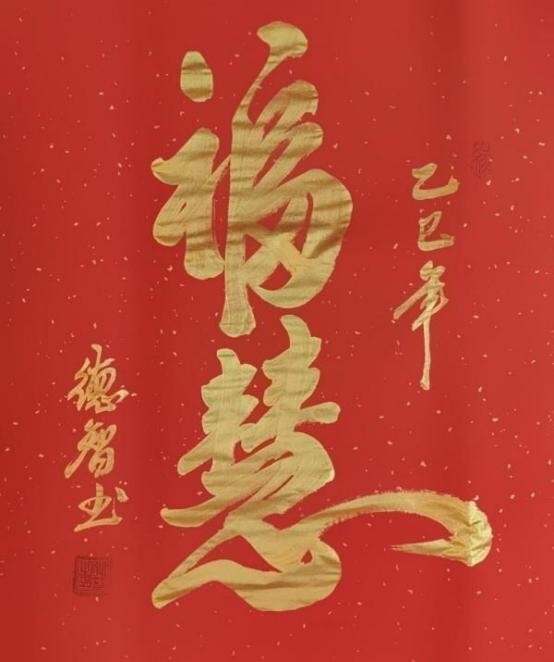 乙巳年
福慧
德智书